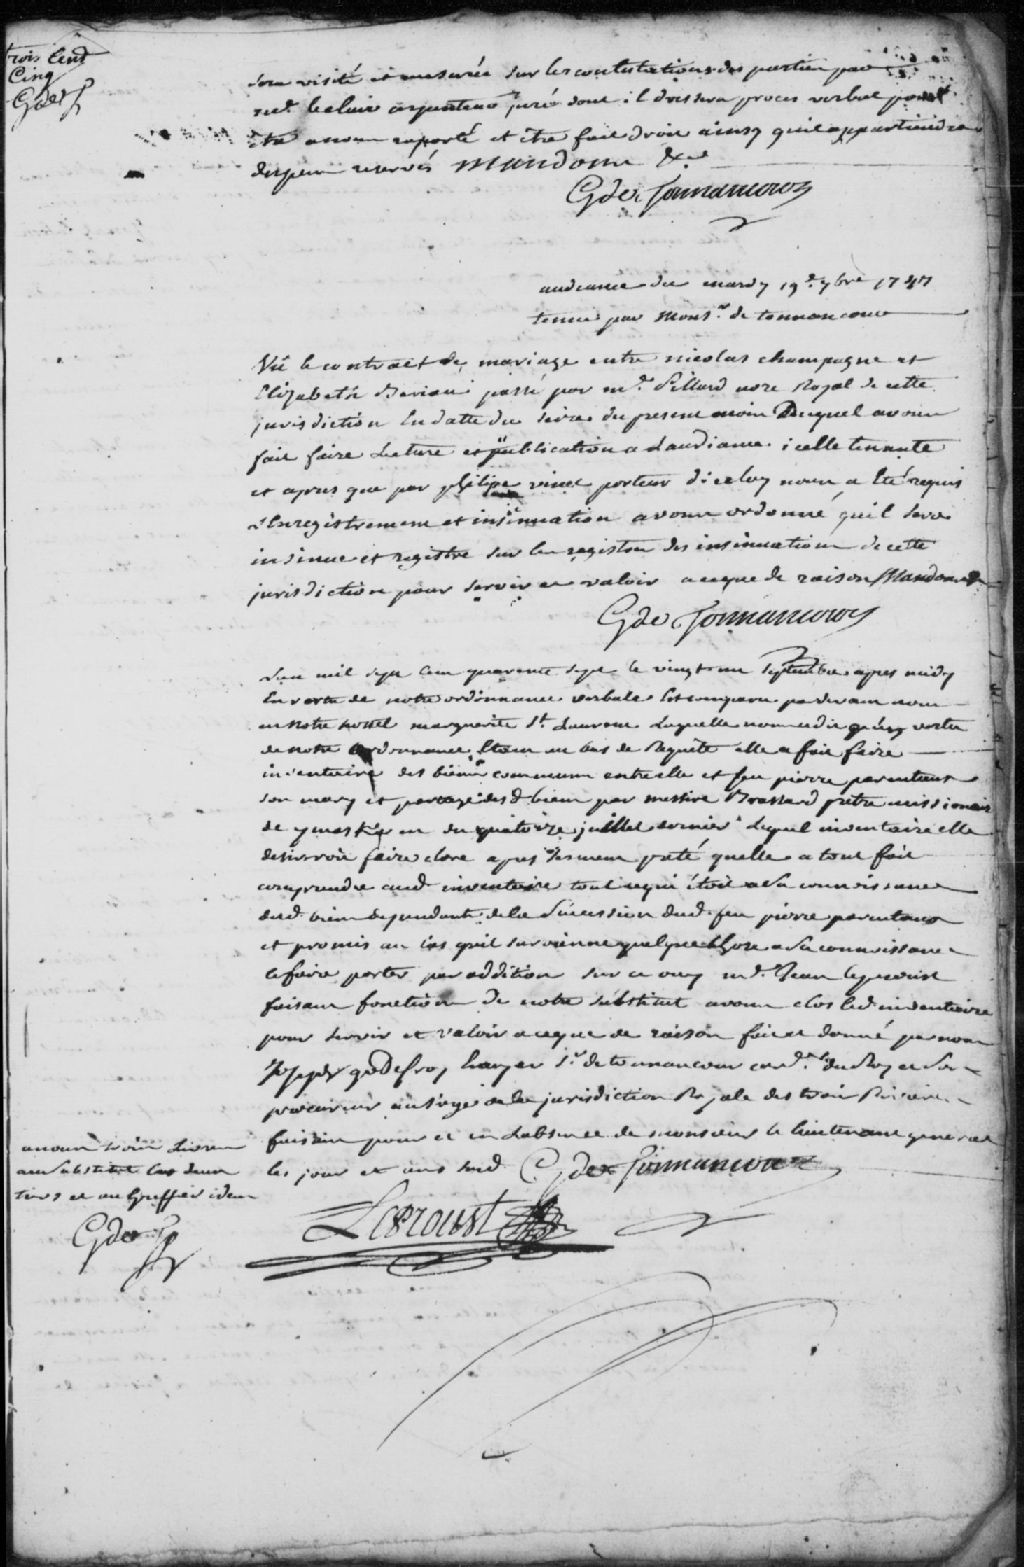 trois Cent
Cinq
Gdet
sera visité et mesurée sur les contestations des parties par
led. leclair arpenteur juré dont il dressera proces verbal pour
être a nous raporté et être fait droit ainsy quil appartiendra
despens reservés Mandons &c
Gde Tonnancour
audiance du mardy 19e. 7bre 1747
tenue par Monsr. de tonnancour
Vû le contract de mariage entre nicolas champagne et
Elizabeth passé par me. Pillard nore Royal de cette
jurisdiction En datte du seize du present mois Duquel avons
fait faire Lecture et publication a Laudiance icelle tenante
et apres que par philipe vinet porteur diceluy nous a Eté requis
L'Enregistrement et insinuation avons ordonné quil sera
insinué et registré sur le registre des insinuations de cette
jurisdiction pour servir et valoir a ce que de raison Mandons
Gde Tonnancour
Lan mil sept cent quarente sept le vingt un Septembre apres midy
En vertu de notre ordonnance verbale Est comparu pardevant nous
en Notre hotel marguerite St. Laurent Laquelle nous a dit qu'en vertu
de notre ordonnance Etant au bas de Requête elle a fait faire
inventaire des biens commun entre elle et feu pierre parenteau
son mary et partage des d. biens par messire Brassard prêtre missionaire
de en du quatorze juillet dernier Lequel inventaire elle
desireroit faire clore apres serment preté quelle a tout fait
comprendre aud. inventaire tout ce qui étoit a Sa connoissance
dud. biens dependant de la Succession dud. feu pierre parenteau
et promis au cas quil survienne quelque chose a Sa connoissance
le faire porter par addition sur ce ouy me. Jean leproust
faisant fonction de notre substitut avons clos led. inventaire
pour servir et valoir a ce que de raison fait et donné par nous
Joseph godefroy Ecuyer Sr. de tonnancour con.er du Roy et Son
procureur au Siege de la jurisdiction Royale des trois Rivieres
faisant pour et en Labsence de monsieur le lieutenant general
les jour et ans sud. Gde Tonnancour
a nous trois Livres
au substitut Les deux
tiers et au Greffier idem
Gde T
Leproust